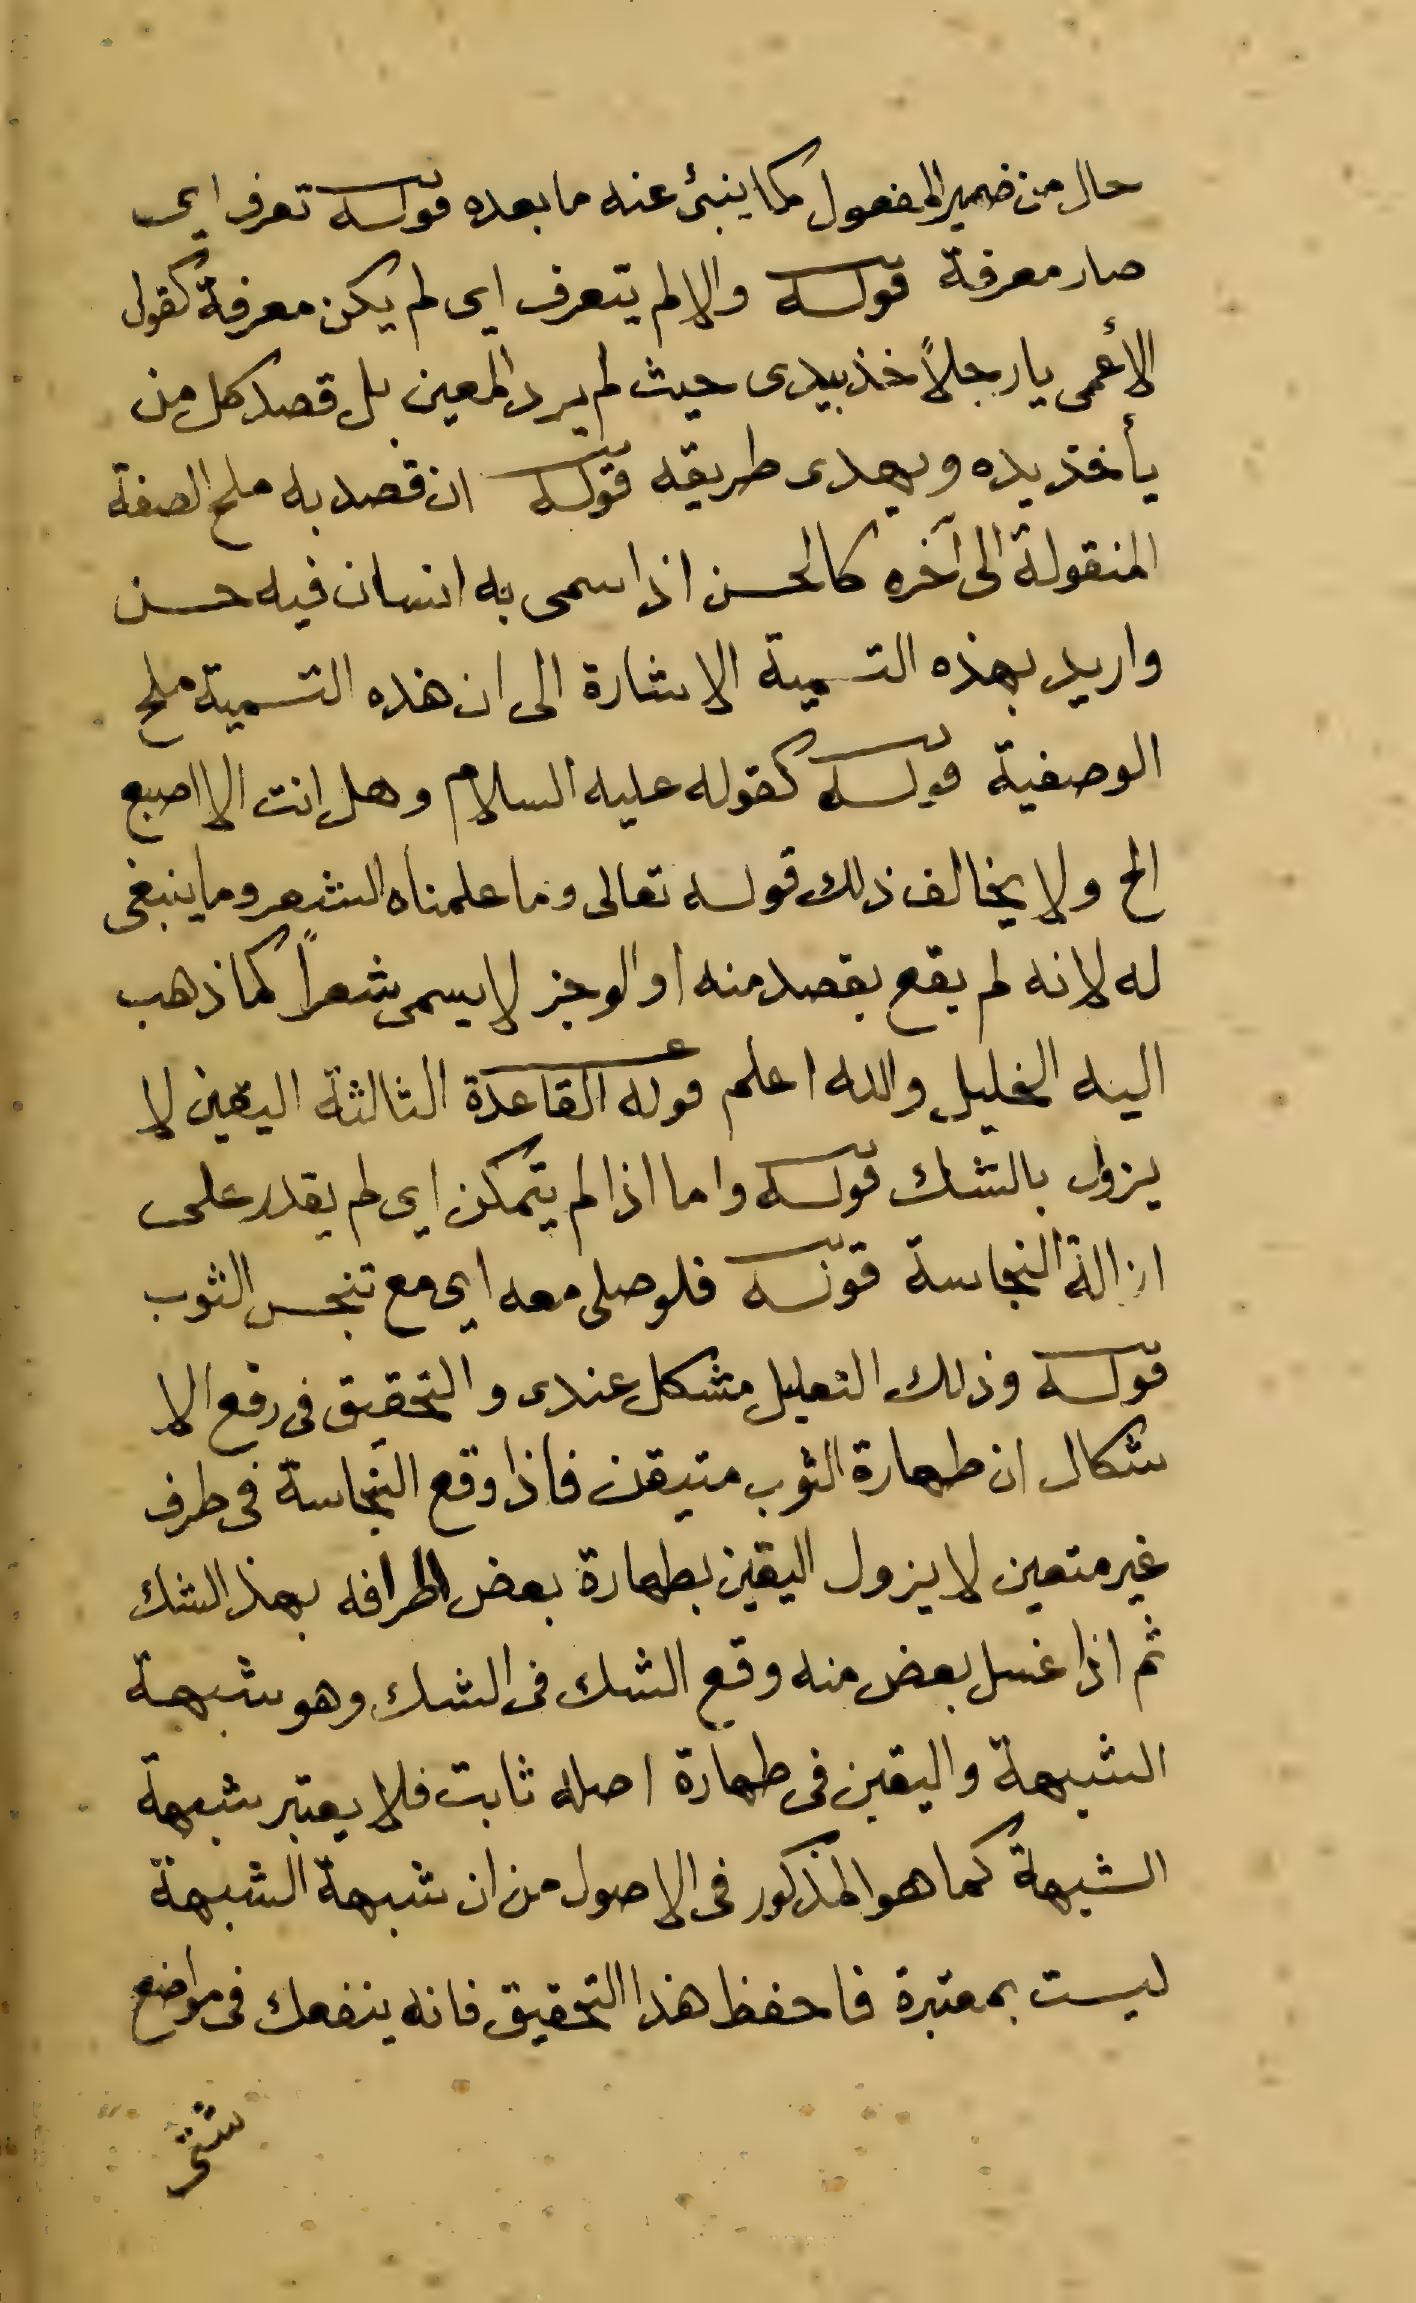 حال من ضمير المفعول كما ينبئ عنه ما بعده قوله تعرف اى
صار معرفة قوله والا لم يتعرف اى لم يكن معرفة كقول
الأعمى يا رجلاً خذ بيدى حيث لم يرد المعين بل قصد كل من
يأخذ يده ويهدى طريقه قوله ان قصد به ملح الصفة
المنقولة الى آخره كالحسن اذا سمى به انسان فيه حسن
واريد بهذه التسمية الاشارة الى ان هذه التسمية ملح
الوصفية قوله كقوله عليه السلام وهل انت الا اصبع
الخ ولا يخالف ذلك قوله تعالى وما علمناه الشعر وما ينبغى
له لانه لم يقع بقصد منه او الوجز لا يسمى شعراً كما ذهب
اليه الخليل والله اعلم قوله القاعدة الثالثة اليقين لا
يزول بالشك قوله واما اذا لم يتمكن اى لم يقدر على
ازالة النجاسة قوله فلو صلى معه اى مع تنجس الثوب
قوله وذلك التعليل مشكل عندى والتحقيق فى رفع الا
شكال ان طهارة الثوب متيقن فاذا وقع النجاسة فى طرف
غير متعين لا يزول اليقين بطهارة بعض اطرافه بهذا الشك
ثم اذا غسل بعض منه وقع الشك فى الشك وهو شبهة
الشبهة واليقين فى طهارة اصله ثابت فلا يعتبر شبهة
الشبهة كما هو المذكور فى الاصول من ان شبهة الشبهة
ليست بمعتبرة فاحفظ هذا التحقيق فانه ينفعك فى مواضع
شتى